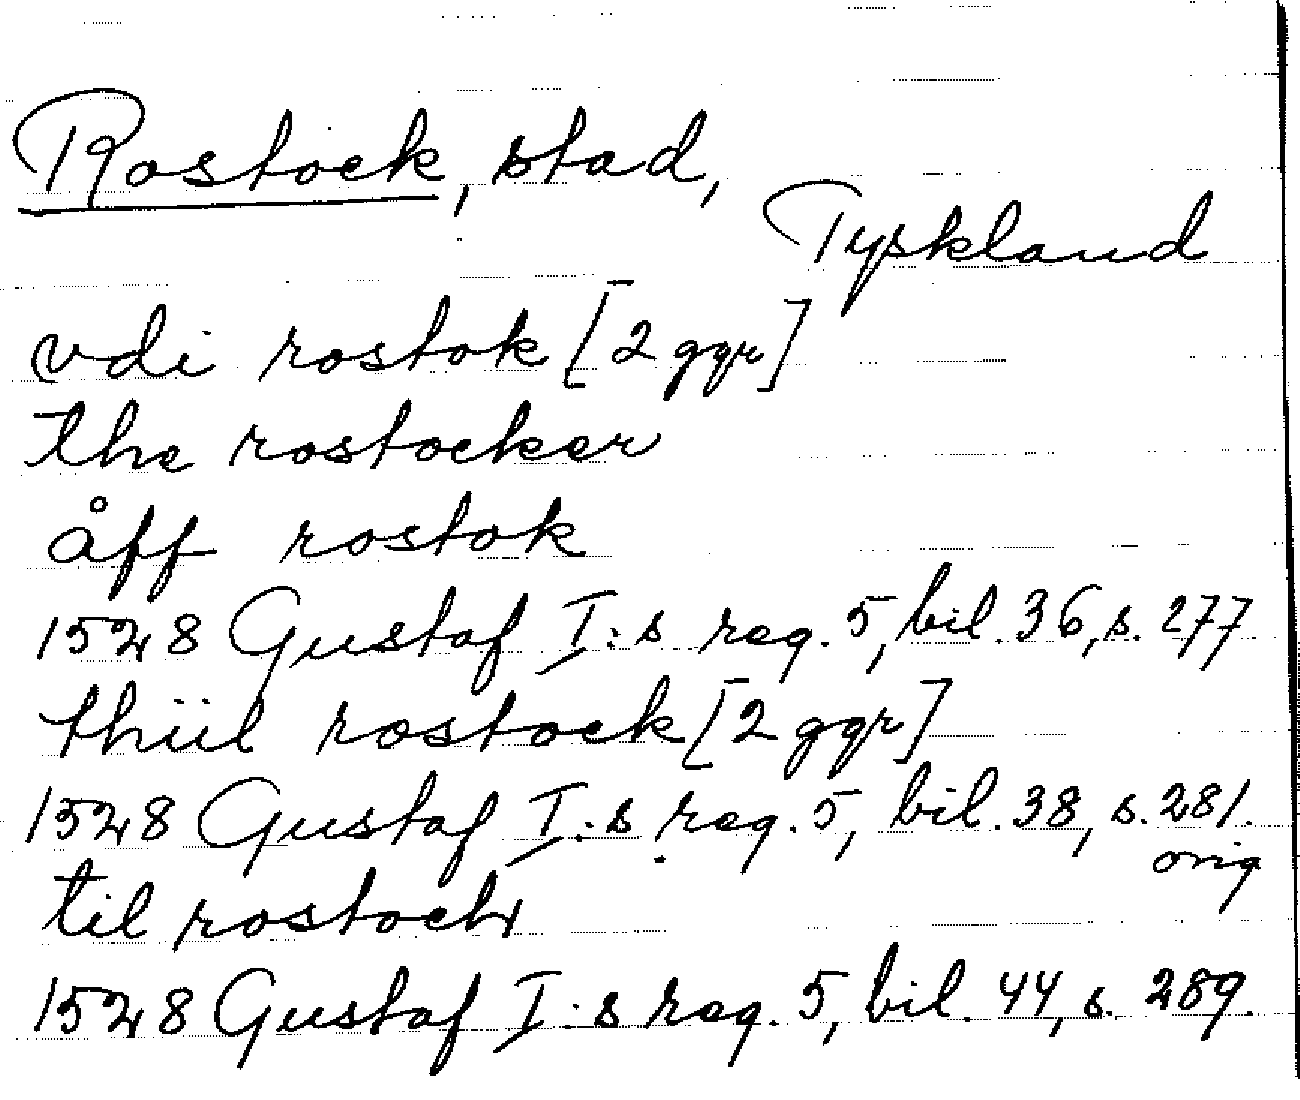 Rostock, stad,
Tyskland
vdi rostok [2 ggr]
the rostocker
åff rostok
1528 Gustaf I:s reg. 5, bil. 36, s. 277
thiil rostock [2 ggr]
1528 Gustaf I:s reg. 5, bil. 38, s. 281.
orig
til rostoch
1528 Gustaf I:s reg. 5, bil. 44, s. 289.